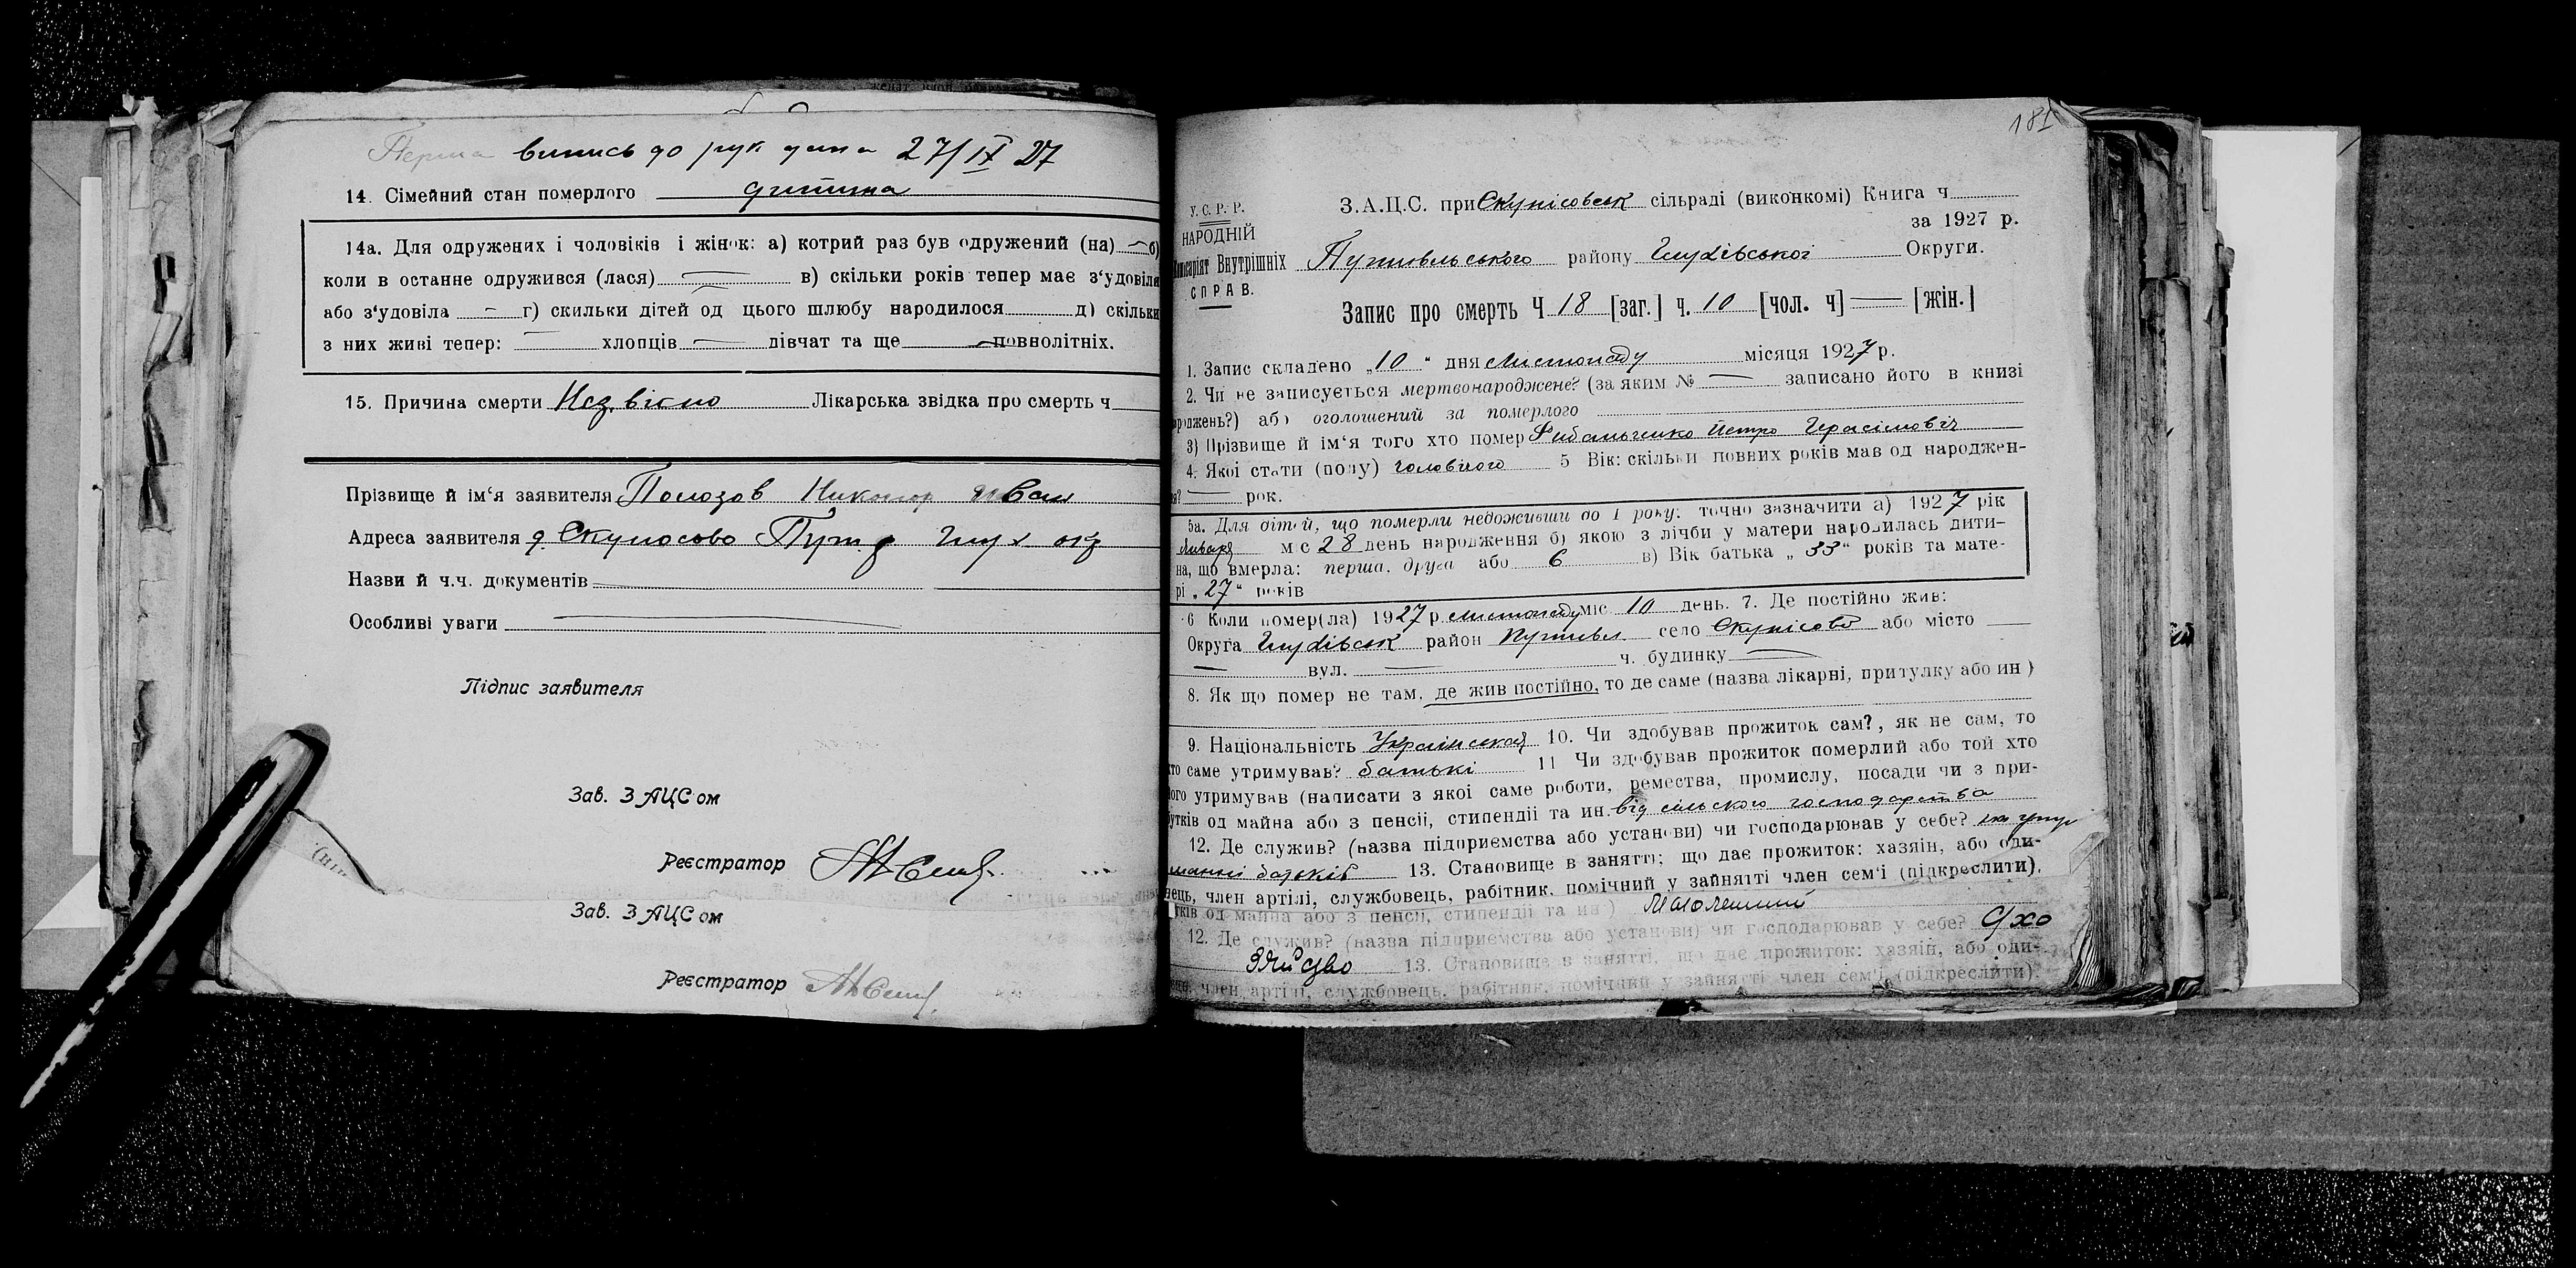 Перша випись до рук дана 27/IX 27
14. Сімейний стан померлого дитина
14а. Для одружених і чоловіків і жінок: а) котрий раз був одружений (на) — б)
коли в останне одружився (лася) — в) скільки років тепер має з'удовіля
або з'удовіла — г) скильки дітей од цього шлюбу народилося д) скільки
з них живі тепер: — хлопців — дівчат та ще — повнолітніх.
15. Причина смерти Нез.вісно Лікарська звідка про смерть ч
Прізвище й ім'я заявителя Полозов Никонор Иван
Адреса заявителя д. Скуносово Пут. Глух окр
Назви й ч.ч. документів —
Особливі уваги —
Підпис заявителя
Зав. ЗАЦСом
Реєстратор
Зав. ЗАЦСом
Реєстратор
181
У.С.Р.-Р.
НАРОДНІЙ
Комісаріят Внутрішніх
СПРАВ.
З.А.Ц.С. при Скунісовськ сільраді (виконкомі) Книга ч
за 1927 р.
Путивльського району Глухівської Округи.
Запис про смерть Ч 18 [заг.] ч. 10 [чол. ч] — [жін.]
1. Запис складено „10" дня Листопаду місяця 1927 р.
2. Чи не записується мертвонароджене? (за яким № — записано його в книзі
роджень?) або оголошений за померлого
3) Прізвище й ім'я того хто помер Рибальченко Петро Герасімовіч
4. Якої стати (полу) чоловічого 5 Вік: скільки повних років мав од народжен-
ня? — рок.
5а. Для дітей, що померли недоживши до 1 року: точно зазначити а) 1927 рік
Января міс 28 день народження б) якою з лічби у матери народилась дити-
на, що вмерла: перша, друга або 6 в) Вік батька „33" років та мате-
рі „27" років
6 Коли помер(ла) 1927 р. Листопаду міс. 10 день. 7. Де постійно жив:
Округа Глухівськ район Путивл село Скунісово або місто —
— вул. — ч. будинку —
8. Як що помер не там, де жив постійно, то де саме (назва лікарні, притулку або ин)
9. Національність Украінская 10. Чи здобував прожиток сам?, як не сам, то
хто саме утримував? батькі 11 Чи здобував прожиток померлий або той хто
його утримував (написати з якоі саме роботи, ремества, промислу, посади чи з при-
бутків од майна або з пенсії, стипендіі та ин. від сільского господарства
12. Де служив? (назва підприємства або установи) чи господарював у себе? на утри
манні батьків 13. Становище в занятті: що дає прожиток: хазяін, або оди-
нець, член артілі, службовець, рабітник, помічний у зайнятті член сем'і (підкреслити).
Малолетній
тків од майна або з пенсії, стипендії та ин.)
12. Де служив? (назва підприємства або установи) чи господарював у себе? Схо
зяйсво 13. Становище в занятті, що дає прожиток: хазяін, або оди-
член артілі, службовець, рабітник, помічний у зайнятті член сем'і (підкреслити).